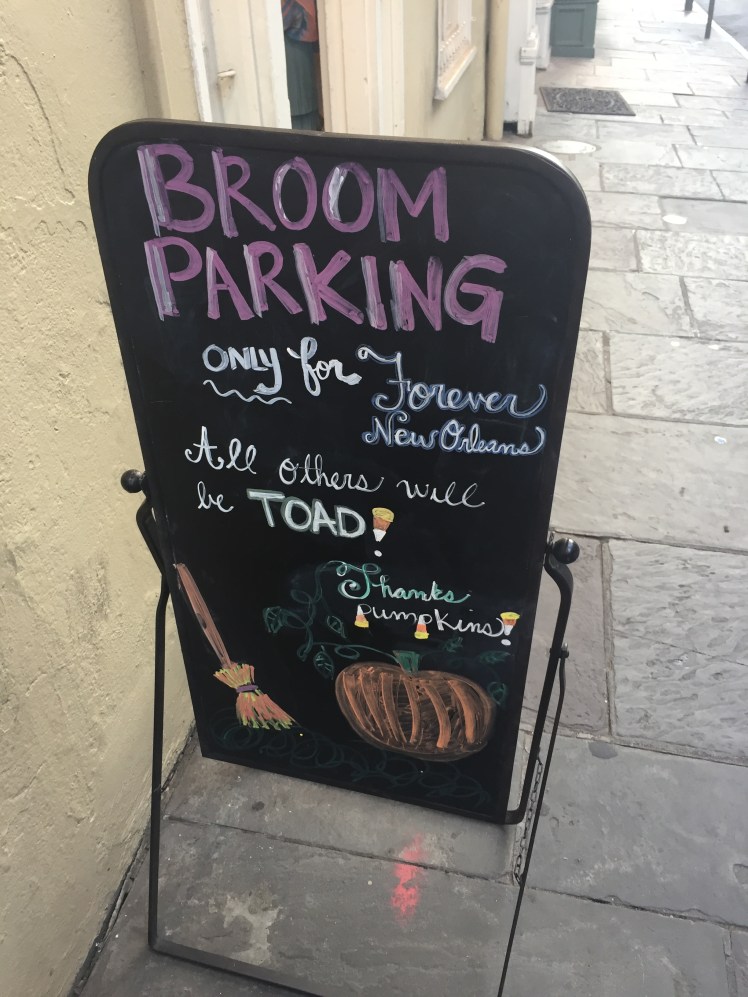 BROOM
PARKING
ONLY for Forever
New Orleans
All others will
be TOAD!
Thanks
pumpkins!